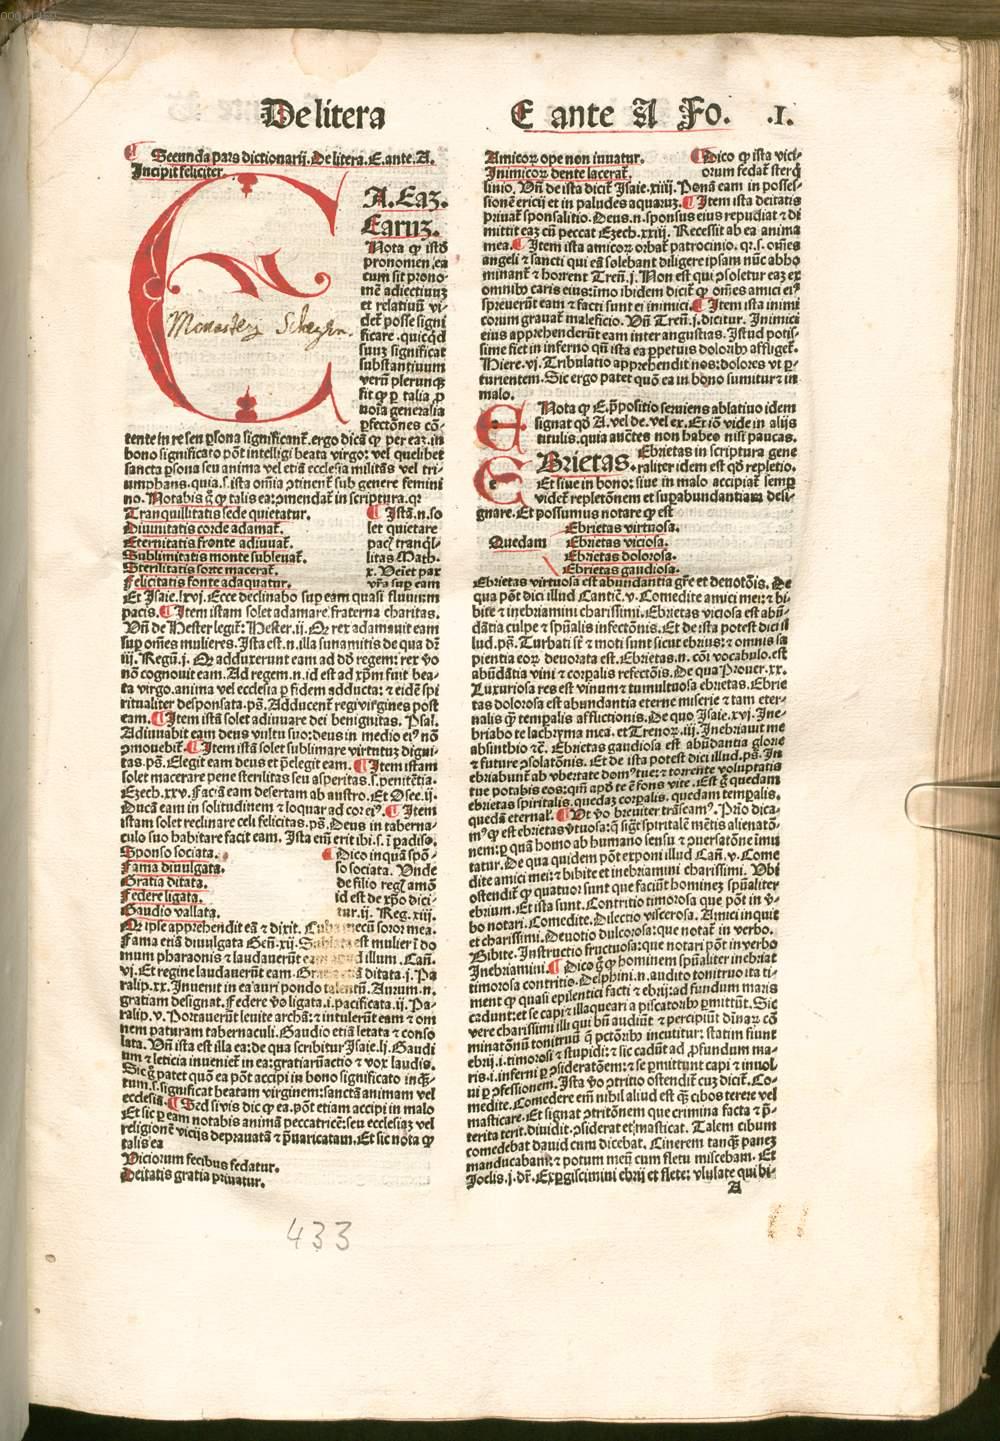 De litera E ante A Fo. .I.
Secunda pars dictionarij. De litera. E. ante. A.
Incipit feliciter.
A. Eaꝫ.
Earuꝫ.
Nota ꝙ istd̄
pronomen, ea
cum sit prono-
mē adiectiuuꝫ
et relatiuū vi-
det̄ posse signi
ficare. quicqd̄
suuꝫ significat
substantiuum
verū plerunqꝫ
fit ꝙ ꝑ talia ꝓ
noīa generalia
ꝑfectōnes cō-
Monasterij Scheyrn
tente in re seu ꝑsona significant̄. ergo dicā ꝙ per eaꝫ. in
bono significato pōt intelligi beata virgo: vel quelibet
sancta ꝑsona seu anima vel etiā ecclesia militās vel tri-
umphans. quia. s. ista om̄ia ꝯtinent̄ sub genere femini
no. Notabis g̊ ꝙ talis ea: ꝯmendat̄ in scriptura. qꝛ
Tranquillitatis sede quietatur.
Diuinitatis corde adamat̄.
Eternitatis fronte adiuuat̄.
Sublimitatis monte subleuat̄.
Sterilitatis sorte macerat̄.
Felicitatis fonte adaquatur.
Istā. n. so
let quietare
pac̄ tranql̄-
litas Math.
x. Veīet pax
vr̄a sup eam
Et Isaie. lxvj. Ecce declinabo sup eam quasi fluuium
pacis. Item istam solet adamare fraterna charitas.
Vn̄ de Hester legit̄: Hester. ij. Qꝛ rex adamauit eam
sup om̄es mulieres. Ista est. n. illa sunamitis de qua dr̄
iij. Regū. j. Qꝛ adduxerunt eam ad dō regem: rex v̊o
nō cognouit eam. Ad regem. n. id est ad xp̄m fuit bea-
ta virgo. anima vel ecclesia ꝑ fidem adducta: ⁊ eidē spi
ritualiter desponsata. ps̄. Adducent̄ regi virgines post
eam. Item istā solet adiuuare dei benignitas. Psal.
Adiuuabit eam deus vultu suo: deus in medio eiꝰ nō
ꝯmouebit̄. Item istā solet sublimare virtutuꝫ digni-
tas. ps̄. Elegit eam deus et p̄elegit eam. Item istam
solet macerare pene sterilitas seu asperitas. s. penitētia.
Ezech. xxv. Faciā eam desertam ab austro. Et Osee. ij.
Ducā eam in solitudinem ⁊ loquar ad cor eiꝰ. Item
istam solet reclinare celi felicitas. ps̄. Deus in taberna-
culo suo habitare facit eam. Ista em̄ erit ibi. s. ī padiso.
Sponso sociata.
Fama diuulgata.
Gratia ditata.
Federe ligata.
Gaudio vallata.
Dico inquā spō-
so sociata. Unde
de filio reḡ amō
id est de xp̄o dici-
tur. ij. Reg. xiij.
Qꝛ ipse apprehendit eā ⁊ dixit. Cuba mecū soror mea.
Fama etiā diuulgata Gen̄. xij. Sublata est mulier ī do
mum pharaonis ⁊ laudauerūt eam apud illum. Can̄.
vj. Et regine laudauerūt eam. Gratia etiā ditata. j. Pa
ralip. xx. Inuenit in ea auri pondo talentū. Aurum. n.
gratiam designat. Federe v̊o ligata. i. pacificata. ij. Pa-
ralip. v. Portauerūt leuite archā: ⁊ intulerūt eam ⁊ om
nem paturam tabernaculi. Gaudio etiā letata ⁊ conso
lata. Vn̄ ista est illa ea: de qua scribitur Isaie. lj. Gaudi
um ⁊ leticia inueniēt in ea: gratiarūactio ⁊ vox laudis.
Sic g̊ patet quō ea pōt accipi in bono significato inqꝫ-
tum. s. significat beatam virginem: sanctā animam vel
ecclesiā. Sed si vis dic ꝙ ea. pōt etiam accipi in malo
Et sic ꝑ eam notabis animā peccatricē: seu ecclesiaꝫ vel
religionē vicijs depravatā ⁊ p̄uaricatam. Et sic nota ꝙ
talis ea
Viciorum fecibus fedatur.
Deitatis gratia priuatur.
Amicoꝝ ope non iuuatur.
Inimicoꝝ dente lacerat̄.
Dico ꝙ ista vici-
orum fedat̄ sterq̄
linio. Vn̄ de ista dicit̄ Isaie. xiiij. Ponā eam in posses-
sionē ericij et in paludes aquaruꝫ. Item ista deitatis
priuat̄ sponsalitio. Deus. n. sponsus eius repudiat ⁊ di
mittit eaꝫ cū peccat Ezech. xxiij. Recessit ab ea anima
mea. Item ista amicoꝝ orbat̄ patrocinio. qꝛ. s. om̄es
angeli ⁊ sancti qui eā solebant diligere ipsam nūc abho
minant̄ ⁊ horrent Tren̄. j. Non est qui ꝯsoletur eaꝫ ex
omnibꝰ caris eius: īmo ibidem dicit̄ ꝙ om̄es amici eiꝰ
spreuerūt eam ⁊ facti sunt ei inimici. Item ista inimi
corum grauat̄ maleficio. Vn̄ Tren̄. j. dicitur. Inimici
eius apprehenderūt eam inter angustias. Istud potis-
sime fiet in inferno qn̄ ista ea ꝑpetuis doloribꝰ affliget̄.
Hiere. vj. Tribulatio apprehendit nos: dolores vt ꝑ-
turientem. Sic ergo patet quō ea in bōno sumitur ⁊ in
malo.
E Nota ꝙ E. p̄positio seruiens ablatiuo idem
signat qd̄ A. vel de. vel ex. Et iō vide in alijs
titulis. quia auctēs non habeo nisi paucas.
EBrietas. Ebrietas in scriptura gene
raliter idem est qd̄ repletio.
Et siue in bono: siue in malo accipiat̄ semꝑ
videt̄ repletōnem et supabundantiam desi-
gnare. Et possumus notare ꝙ est
Quedam
Ebrietas virtuosa.
Ebrietas viciosa.
Ebrietas dolorosa.
Ebrietas gaudiosa.
Ebrietas virtuosa est abundantia gr̄e et deuotōis. De
qua pōt dici illud Cantic̄. v. Comedite amici mei: ⁊ bi-
bite ⁊ inebriamini charissimi. Ebrietas viciosa est abū-
dātia culpe ⁊ spūalis infectōnis. Et de ista potest dici il
lud. ps̄. Turbati st̄ ⁊ moti sunt sicut ebrius: ⁊ omnis sa
pientia eoꝝ deuorata est. Ebrietas. n. cōi vocabulo. est
abūdātia vini ⁊ corꝑalis refectōis. De qua Prouer. xx.
Luxuriosa res est vinum ⁊ tumultuosa ebrietas. Ebrie
tas dolorosa est abundantia eterne miserie ⁊ tam eter-
nalis ꝙ̄ tempalis afflictionis. De quo Isaie. xvj. Ine-
briabo te lachryma mea. et Trenoꝝ. iij. Inebriauit me
absinthio ⁊c̄. Ebrietas gaudiosa est abūdantia glorie
⁊ future ꝯsolatōnis. Et de ista potest dici illud. ps̄. In
ebriabunt̄ ab vbertate domꝰ tue: ⁊ torrente voluptatis
tue potabis eos: qm̄ apd̄ te ē fons vite. Est g̊ quedam
ebrietas spiritalis. quedaꝫ corꝑalis. quedam tempalis.
quedā eternal̄. Ut v̊o breuiter trāseamꝰ. Prīo dica-
mꝰ ꝙ est ebrietas v̄tuosa: q̄ siḡt spiritalē mētis alienatō-
nem: ꝑ quā homo ab humano sensu ⁊ ꝯuersatōne īmu
tatur. De qua quidem pōt exponi illud Can̄. v. Come
dite amici mei: ⁊ bibite et inebriamini charissimi. Ubi
ostendit̄ ꝙ quatuor sunt que faciūt homineꝫ spūaliter
ebrium. Et ista sunt. Contritio timorosa que pōt in v̄-
bo notari. Comedite. Dilectio viscerosa. Amici inquit
et charissimi. Deuotio dulcorosa: que notat̄ in verbo.
Bibite. Instructio fructuosa: que notari pōt in verbo
Inebriamini. Dico g̊ ꝙ hominem spūaliter inebriat
timorosa contritio. Delphini. n. audito tonitruo ita ti-
ment ꝙ quasi epilentici facti ⁊ ebrij: ad fundum maris
cadunt: et se capi ⁊ illaqueari a piscatoribꝰ ꝑmittūt. Sic
vere charissimi illi qui bn̄ audiūt ⁊ percipiūt diuinaꝝ cō
minatōnū tonitruū ꝙ pctōribꝰ incutitur: statim fiunt
ebrij. i. timorosi ⁊ stupidi: ⁊ sic cadūt ad ꝓfundum ma-
ris. i. inferni ꝑ ꝯsideratōem: ⁊ se ꝑmittunt capi ⁊ inuol
ui ꝑ ꝯfessionem. Ista v̊o ꝯtritio ostendit̄ cuꝫ dicit̄. Co-
medite. Comedere em̄ nihil aliud est ꝙ̄ cibos terere vel
masticare. Et signat ꝯtritōnem que crimina facta ⁊ p̄-
terita terit. diuidit. ꝯsiderat et masticat. Talem cibum
comedebat dauid cum dicebat. Cinerem tanqꝫ paneꝫ
manducabam: ⁊ potum meū cum fletu miscebam. Et
Joelis. j. dr̄. Exꝑgiscimini ebrij et flete: vlulate qui bi-
A
433